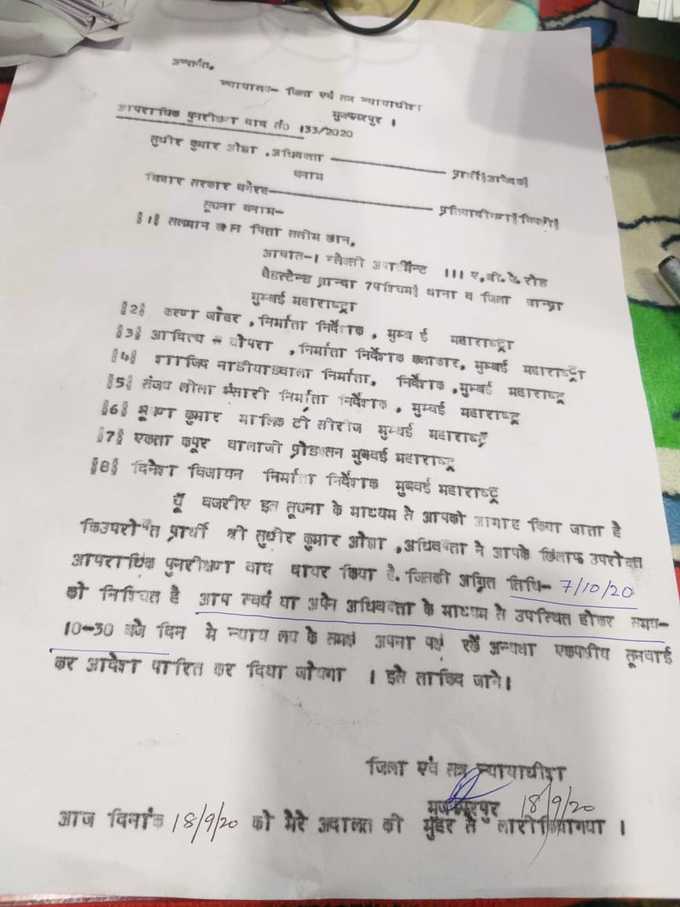 अन्तर्गत,
न्यायालय- जिला एवं सत्र न्यायाधीश
मुजफ्फरपुर ।
आपराधिक पुनरीक्षण वाद सं0 133/2020
सुधीर कुमार ओझा ,अधिवक्ता ————— प्रार्थी
बनाम
बिहार सरकार वगैरह ————— प्रतिवादीगण
सूचना बनाम-
§1§ सलमान खान पिता सलीम खान,
आवास-1 गैलेक्सी अपार्टमेन्ट 111 ए,बी.जे.रोड
बैंडस्टैन्ड बान्द्रा 7पश्चिम§ थाना व जिला बान्द्रा
मुम्बई महाराष्ट्रा
§2§ करण जोहर ,निर्माता निर्देशक , मुम्ब ई महाराष्ट्रा
§3§ आदित्य चोपरा ,निर्माता निर्देशक कलाकार, मुम्बई महाराष्ट्रा
§4§ शाजिद नाडीयाडवाला निर्माता, निर्देशक ,मुम्बई महाराष्ट्र
§5§ संजय लीला भंसारी निर्माता निर्देशक , मुम्बई महाराष्ट्र
§6§ भूषण कुमार मालिक टी सीरीज मुम्बई महाराष्ट्र
§7§ एकता कपूर बालाजी प्रोडक्सन मुम्बई महाराष्ट्र
§8§ दिनेश विजायन निर्माता निर्देशक मुम्बई महाराष्ट्र
यूँ बजरीए इस सूचना के माध्यम से आपको आगाह किया जाता है
किउपरोक्त प्रार्थी श्री सुधीर कुमार ओझा ,अधिवक्ता ने आपके खिलाफ उपरोक्त
आपराधिक पुनरीक्षण वाद दायर किया है. जिसकी अग्रित तिथि- 7/10/20
को निश्चित है आप स्वयं या अपने अधिवक्ता के माध्यम से उपस्थित होकर समय-
10-30 बजे दिन मे न्याय लय के समक्ष अपना पक्ष रखें अन्यथा एकपक्षीय सूनवाई
कर आदेश पारित कर दिया जायेगा । इसे ताकिद जाने।
जिला एवं सत्र न्यायाधीश
मुजफ्फरपुर 18/9/20
आज दिनांक 18/9/20 को मेरे अदालत की मुहर से जारी कियागया ।